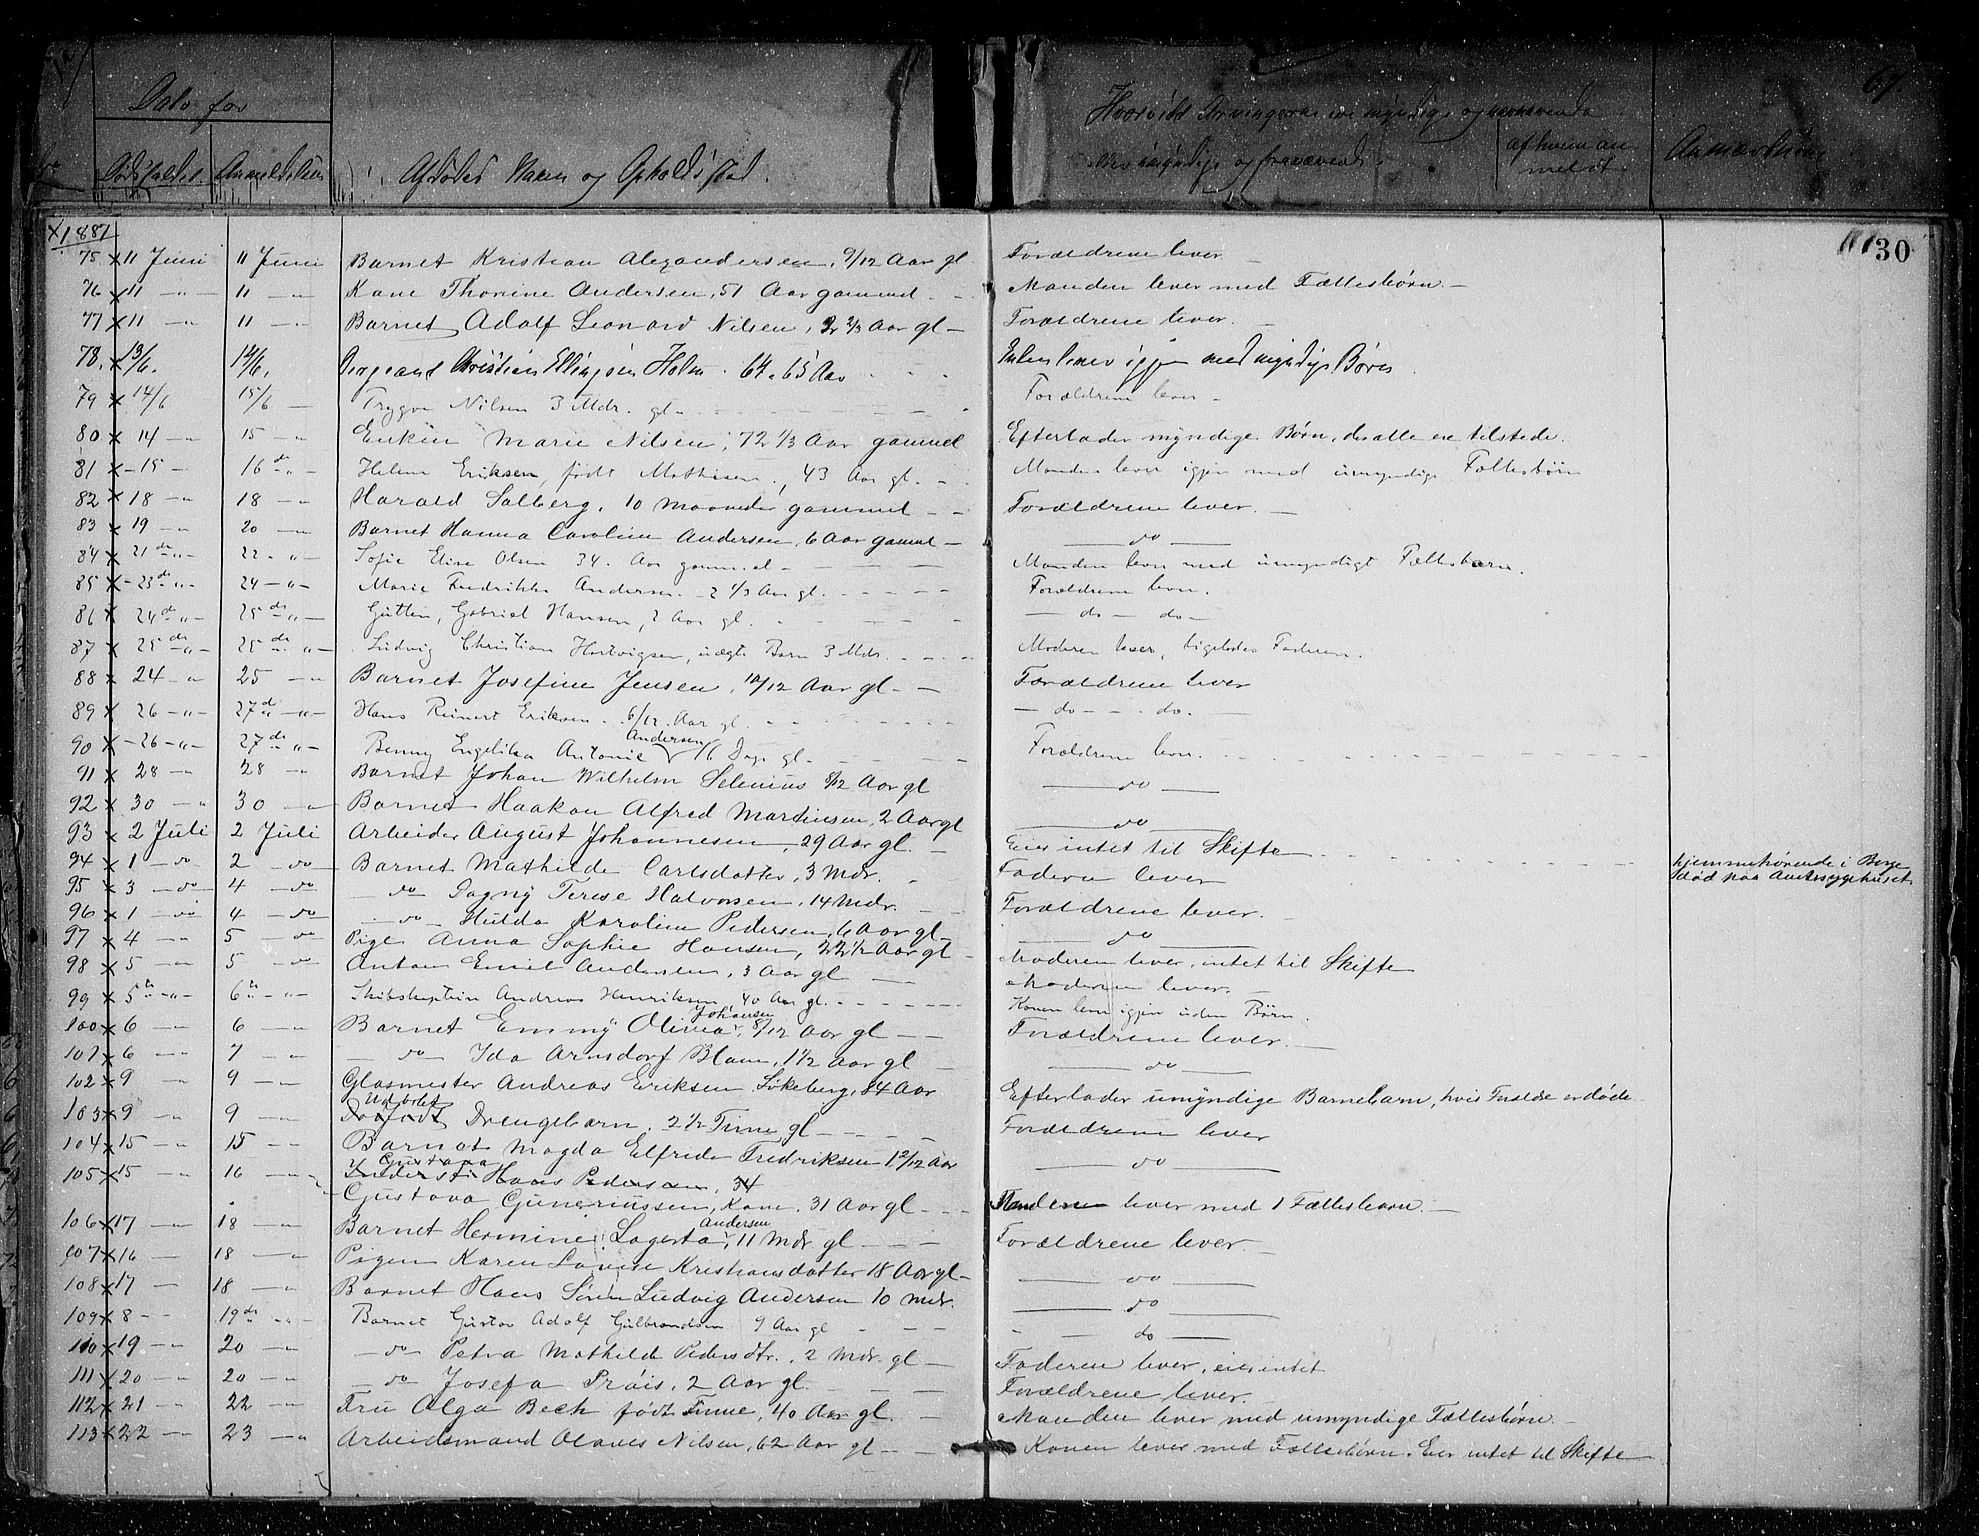 Dato for
Dødsfaldet. Anmeldelsen
Afdødes Navn og Opholdssted.
Hvorvidt Arvingerne ere myndige og nærværende
eller umyndige og fraværende.
af hvem an
meldt
Anmærkning
67.
30
1881
75 x 11 Juni 11 Juni Barnet Kristian Alexandersen, 9/12 Aar gl. Forældrene lever —
76 x 11 — " — 11 — " Kone Thorine Andersen, 51 Aar gammel. — Manden lever med Fællesbørn. —
77 x 11 — " 11 — " Barnet Adolf Leonard Nilsen, 2 2/3 Aar gl — Forældrene lever. —
78. x 13/6. 14/6. Sergeant Christian Ellingsen Holm. 64 a 65 Aar Enken lever igjen med myndige Børn.
79 x 14/6 15/6 — Trygve Nilsen 3 Mdr. gl. Forældrene lever —
80 x 14 — " 15 — " Enken Marie Nilsen, 72 1/3 Aar gammel Efterlader myndige Børn, der alle ere tilstede.
81 x — 15 — 16 de " — Helene Eriksen, født Mathisen, 43 Aar gl. — Manden lever igjen med umyndige Fællesbørn
82 x 18 — " 18 — " Harald Solberg, 10 Maaneder gammel — Forældrene lever. —
83 x 19 — " 20 — " Barnet Hanna Caroline Andersen, 6 Aar gammel — — do —
84 x 21 de " — 22 - " — Sofie Elise Olsen 34. Aar gammel — Manden lever med umyndigt Fællesbarn.
85 x — 23 de " — 24 — " — Marie Fredrikke Andersen 2 1/3 Aar gl. Forældrene lever.
86 x 24 de " — 25 de " — Gutten, Gabriel Hansen, 2 Aar gl. — do — do —
87 x 25 de " — 25 de " — Ludvig Christian Hartvigsen, uægte Barn 3 Mdr. Moderen lever, ligeledes Faderen.
88 x 24 — " 25 — " Barnet Josefine Jensen, 10/12 Aar gl — Forældrene lever
89 x 26 — " — 27 de " — Hans Reinert Eriksen 6/12 Aar gl. — do — — do. —
90 x — 26 — " — 27 de " — Benny Engelika Antonie Andersen 16 Dage gl. Forældrene lever.
91 x 28 — " 28 — " Barnet Johan Wilhelm Selenius 8/12 Aar gl — do —
92 x 30 — " 30 — " Barnet Haakon Alfred Martinsen, 2 Aar gl — do —
93 x 2 Juli 2 Juli Arbeider August Johannesen, 29 Aar gl. — Eier intet til Skifte hjemmehørende i Borge
død paa Amtssygehuset
94 x 1 — do 2 — do Barnet Mathilde Carlsdatter, 3 Mdr. Faderen lever
95 x 3 — do 4 — do — do Dagny Terese Halvorsen, 14 Mdr. Forældrene lever. —
96 x 1 — do 4 — do — do — Hulda Karoline Pedersen, 6 Aar gl — — do —
97 x 4 — " 5 — do Pige Anna Sophie Hansen, 22 1/2 Aar gl — Moderen lever, intet til Skifte
98 x 5 — " 5 — do Anton Emil Andersen, 3 Aar gl — Moderen lever. —
99 x 5 te " — 6 te " — Skibskaptein Andreas Henriksen, 40 Aar gl. Konen lever igjen uden Børn.
100 x 6 — " 6 — " Barnet Emmy Olivia Johansen, 8/12 Aar gl — Forældrene lever. —
101 x 6 — " 7 — " — do — Ida Arnsdorf Blom, 1 1/2 Aar gl — — do —
102 x 9 — " 9 — " Glasmester Andreas Eriksen Løkeberg, 84 Aar Efterlader umyndige Barnebarn, hvis Forældre er døde
103 x 9 — " 9 — " Udøbt Drengebarn. 2 1/2 Time gl — Forældrene lever
104 x 15 — " 15 — " Barnet Magda Elfrida Fredriksen 1 2/12 Aar — do —
105 x 15 — " 16 — " Hans Pedersen, 34
Gustava Guneriussen, Kone, 31 Aar gl — Manden lever med 1 Fællesbarn. —
106 x 17 — " 18 — " Barnet Hermine Lagerta Andersen, 11 Mdr gl — Forældrene lever. —
107 x 16 — 18 — " Pigen Karen Lovise Kristiansdatter 18 Aar gl — — do —
108 x 17 — 18 — " Barnet Hans Søren Ludvig Andersen 10 Mdr. — do —
109 x 8 — 19 de " — Barnet Gustav Adolf Gulbrandsen 9 Aar gl — do —
110 x 19 — " 20 — " — do — Petra Mathilde Pedersdtr., 2 Mdr. gl — Faderen lever, eier intet
111 x 20 — " 20 — " — do — Josefa Prøis, 2 Aar gl. Forældrene lever. —
112 x 21 — " 22 — " Fru Olga Bech født Finne, 40 Aar gl. — Manden lever med umyndige Fællesbørn —
113 x 22 — " 23 — " Arbeidsmand Olaves Nilsen, 62 Aar gl — Konen lever med Fællesbørn. Eier intet til Skifte